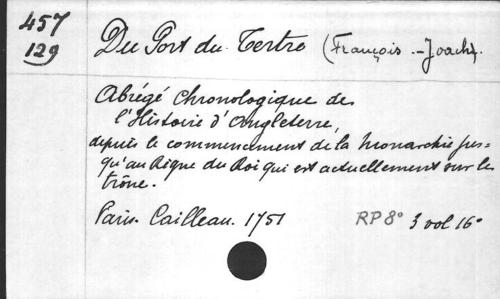 457
129
Du Port du Tertre (François-Joach).
Abrégé Chronologique de
l'Histoire d'Angleterre,
depuis le commencement de la Monarchie jus=
qu'au Règne du Roi qui est actuellement sur le
trône.
Paris. Cailleau. 1751 RP 8° 3 vol 16°